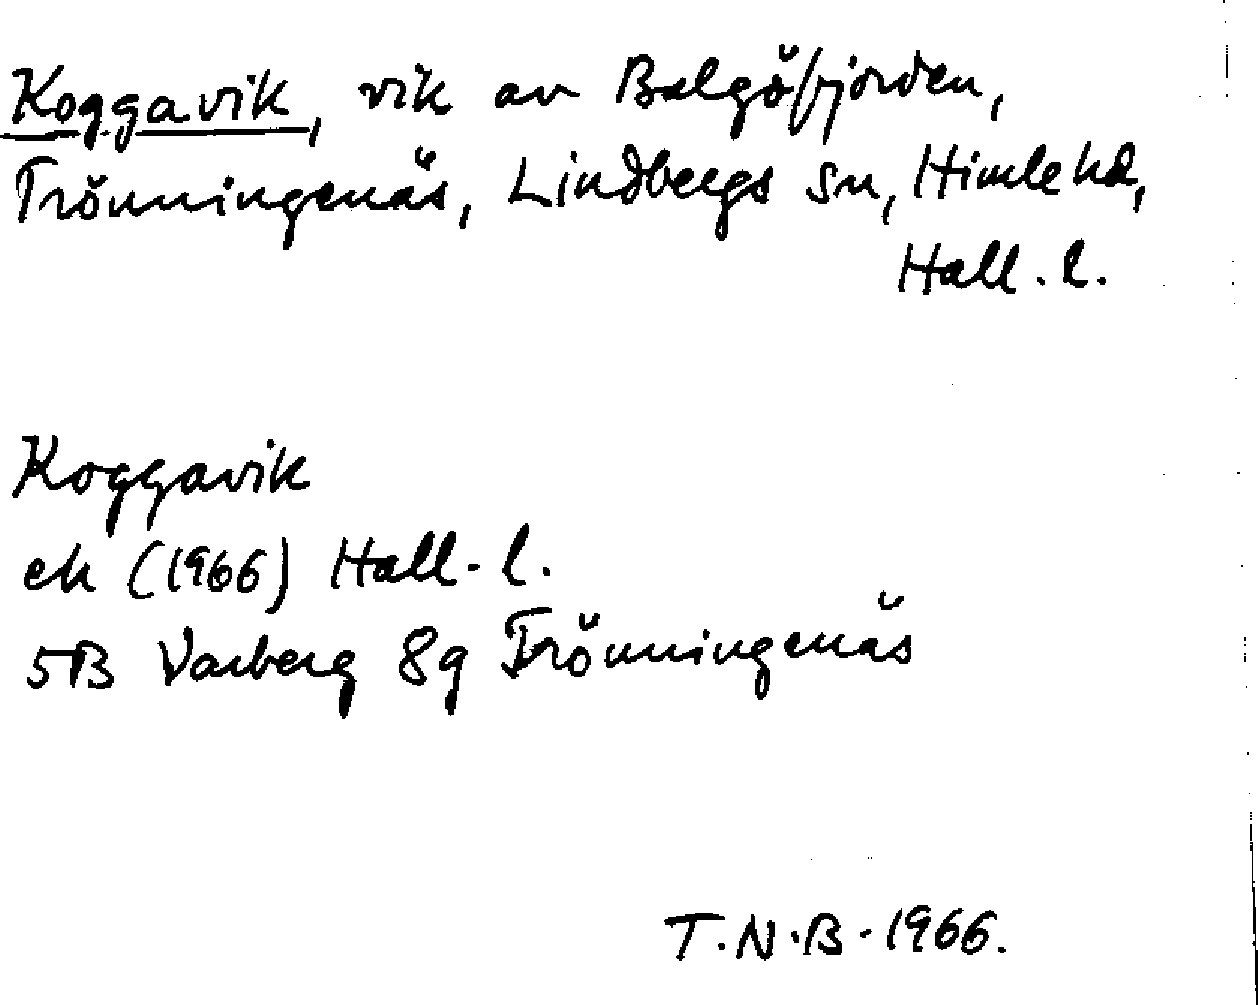 Koggavik, vik av Balgöfjorden,
Trönningenäs, Lindbergs sn, Himle hd,
Hall. l.
Koggavik
ek (1966) Hall. l.
5B Varberg 8g Trönningenäs
T.N.B. 1966.